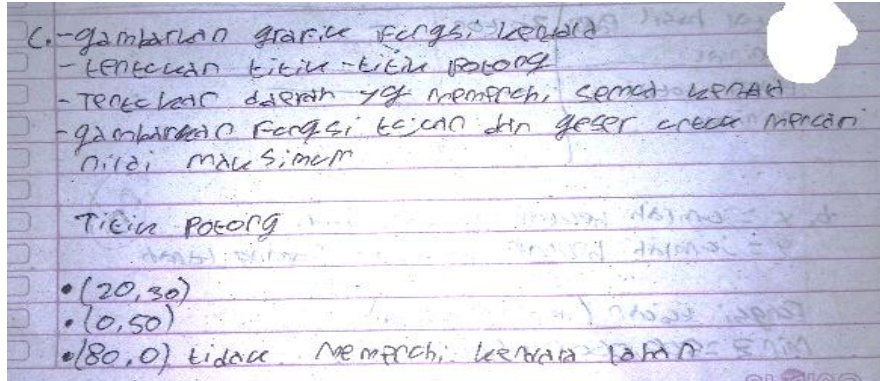 C. - gambarkan grafik fungsi kendala
- tentukan titik-titik potong
- Tentukan daerah yg memenuhi semua kendala
- gambarkan fungsi tujuan dan geser untuk mencari
nilai maksimum
Titik potong
• (20,30)
• (0,50)
• (80,0) tidak memenuhi kendala lahan